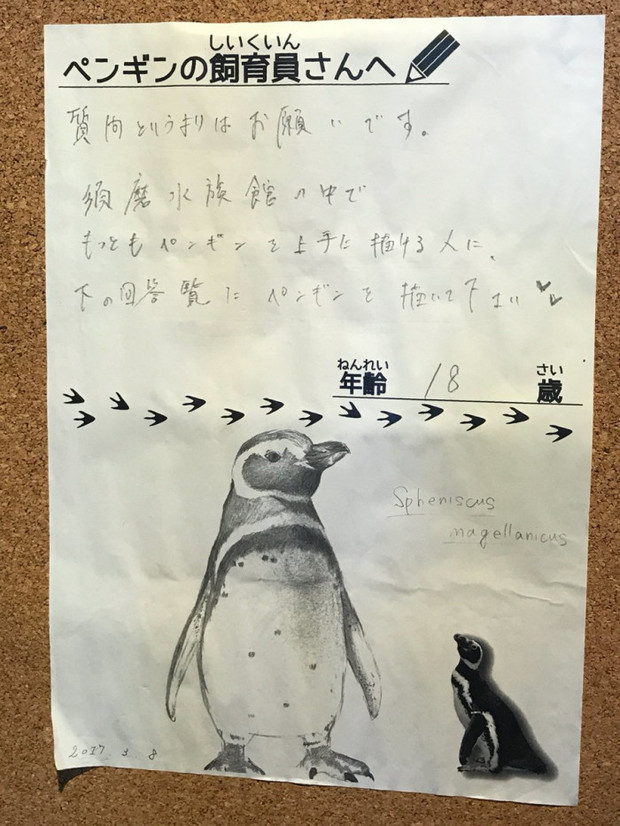 しいくいん
ペンギンの飼育員さんへ
質問というよりはお願いです。
須磨水族館の中で
もっともペンギンを上手に描ける人に、
下の回答覧にペンギンを描いて下さい
ねんれい さい
年齢 18 歳
Spheniscus
magellanicus
2017 3 8